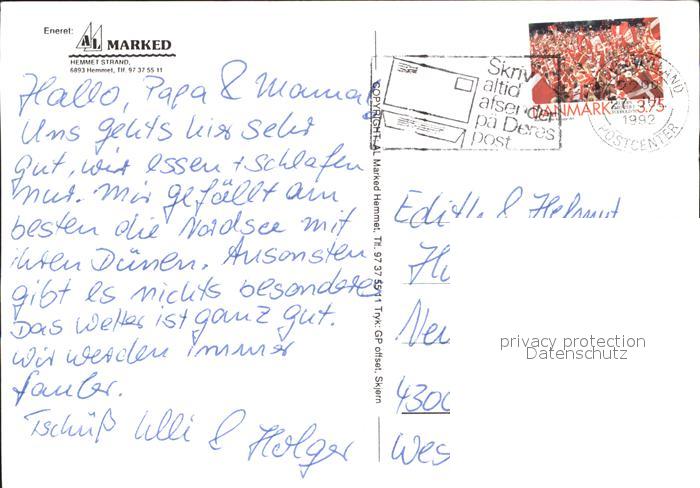 Eneret:
AL MARKED
HEMMET STRAND,
6893 Hemmet, Tlf. 97 37 55 11
Hallo, Papa & Mama
Uns gehts hier sehr
gut, wir essen + schlafen
nur. Mir gefällt am
besten die Nordsee mit
ihren Dünen. Ansonsten
gibt es nichts besonderes
Das Wetter ist ganz gut.
Wir werden immer
fauler.
Tschüß Ulli & Holger
COPYRIGHT: AL Marked Hemmet, Tlf. 97 37 55 11 Tryk: GP offset, Skjern
Skriv
altid
afsender
på Deres
post
DANMARK 3.75
1992
POSTCENTER
Edith & Helmut
4300
Wes
privacy protection
Datenschutz